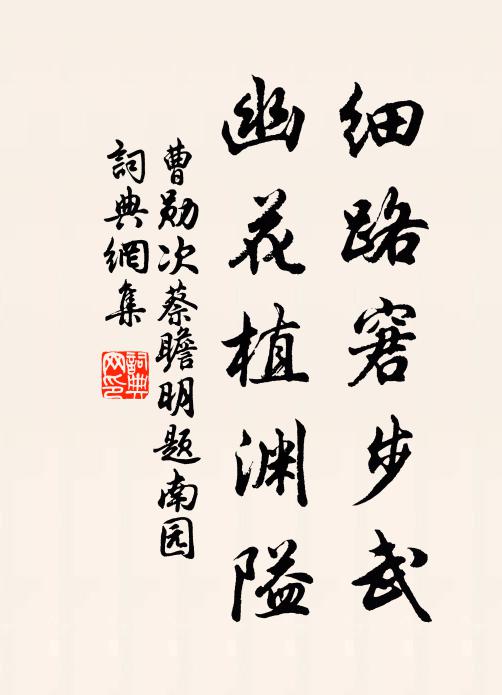 细路窘步武
幽花植渊隘
曹勋次蔡瞻明题南园
詞典網集
詞典網印